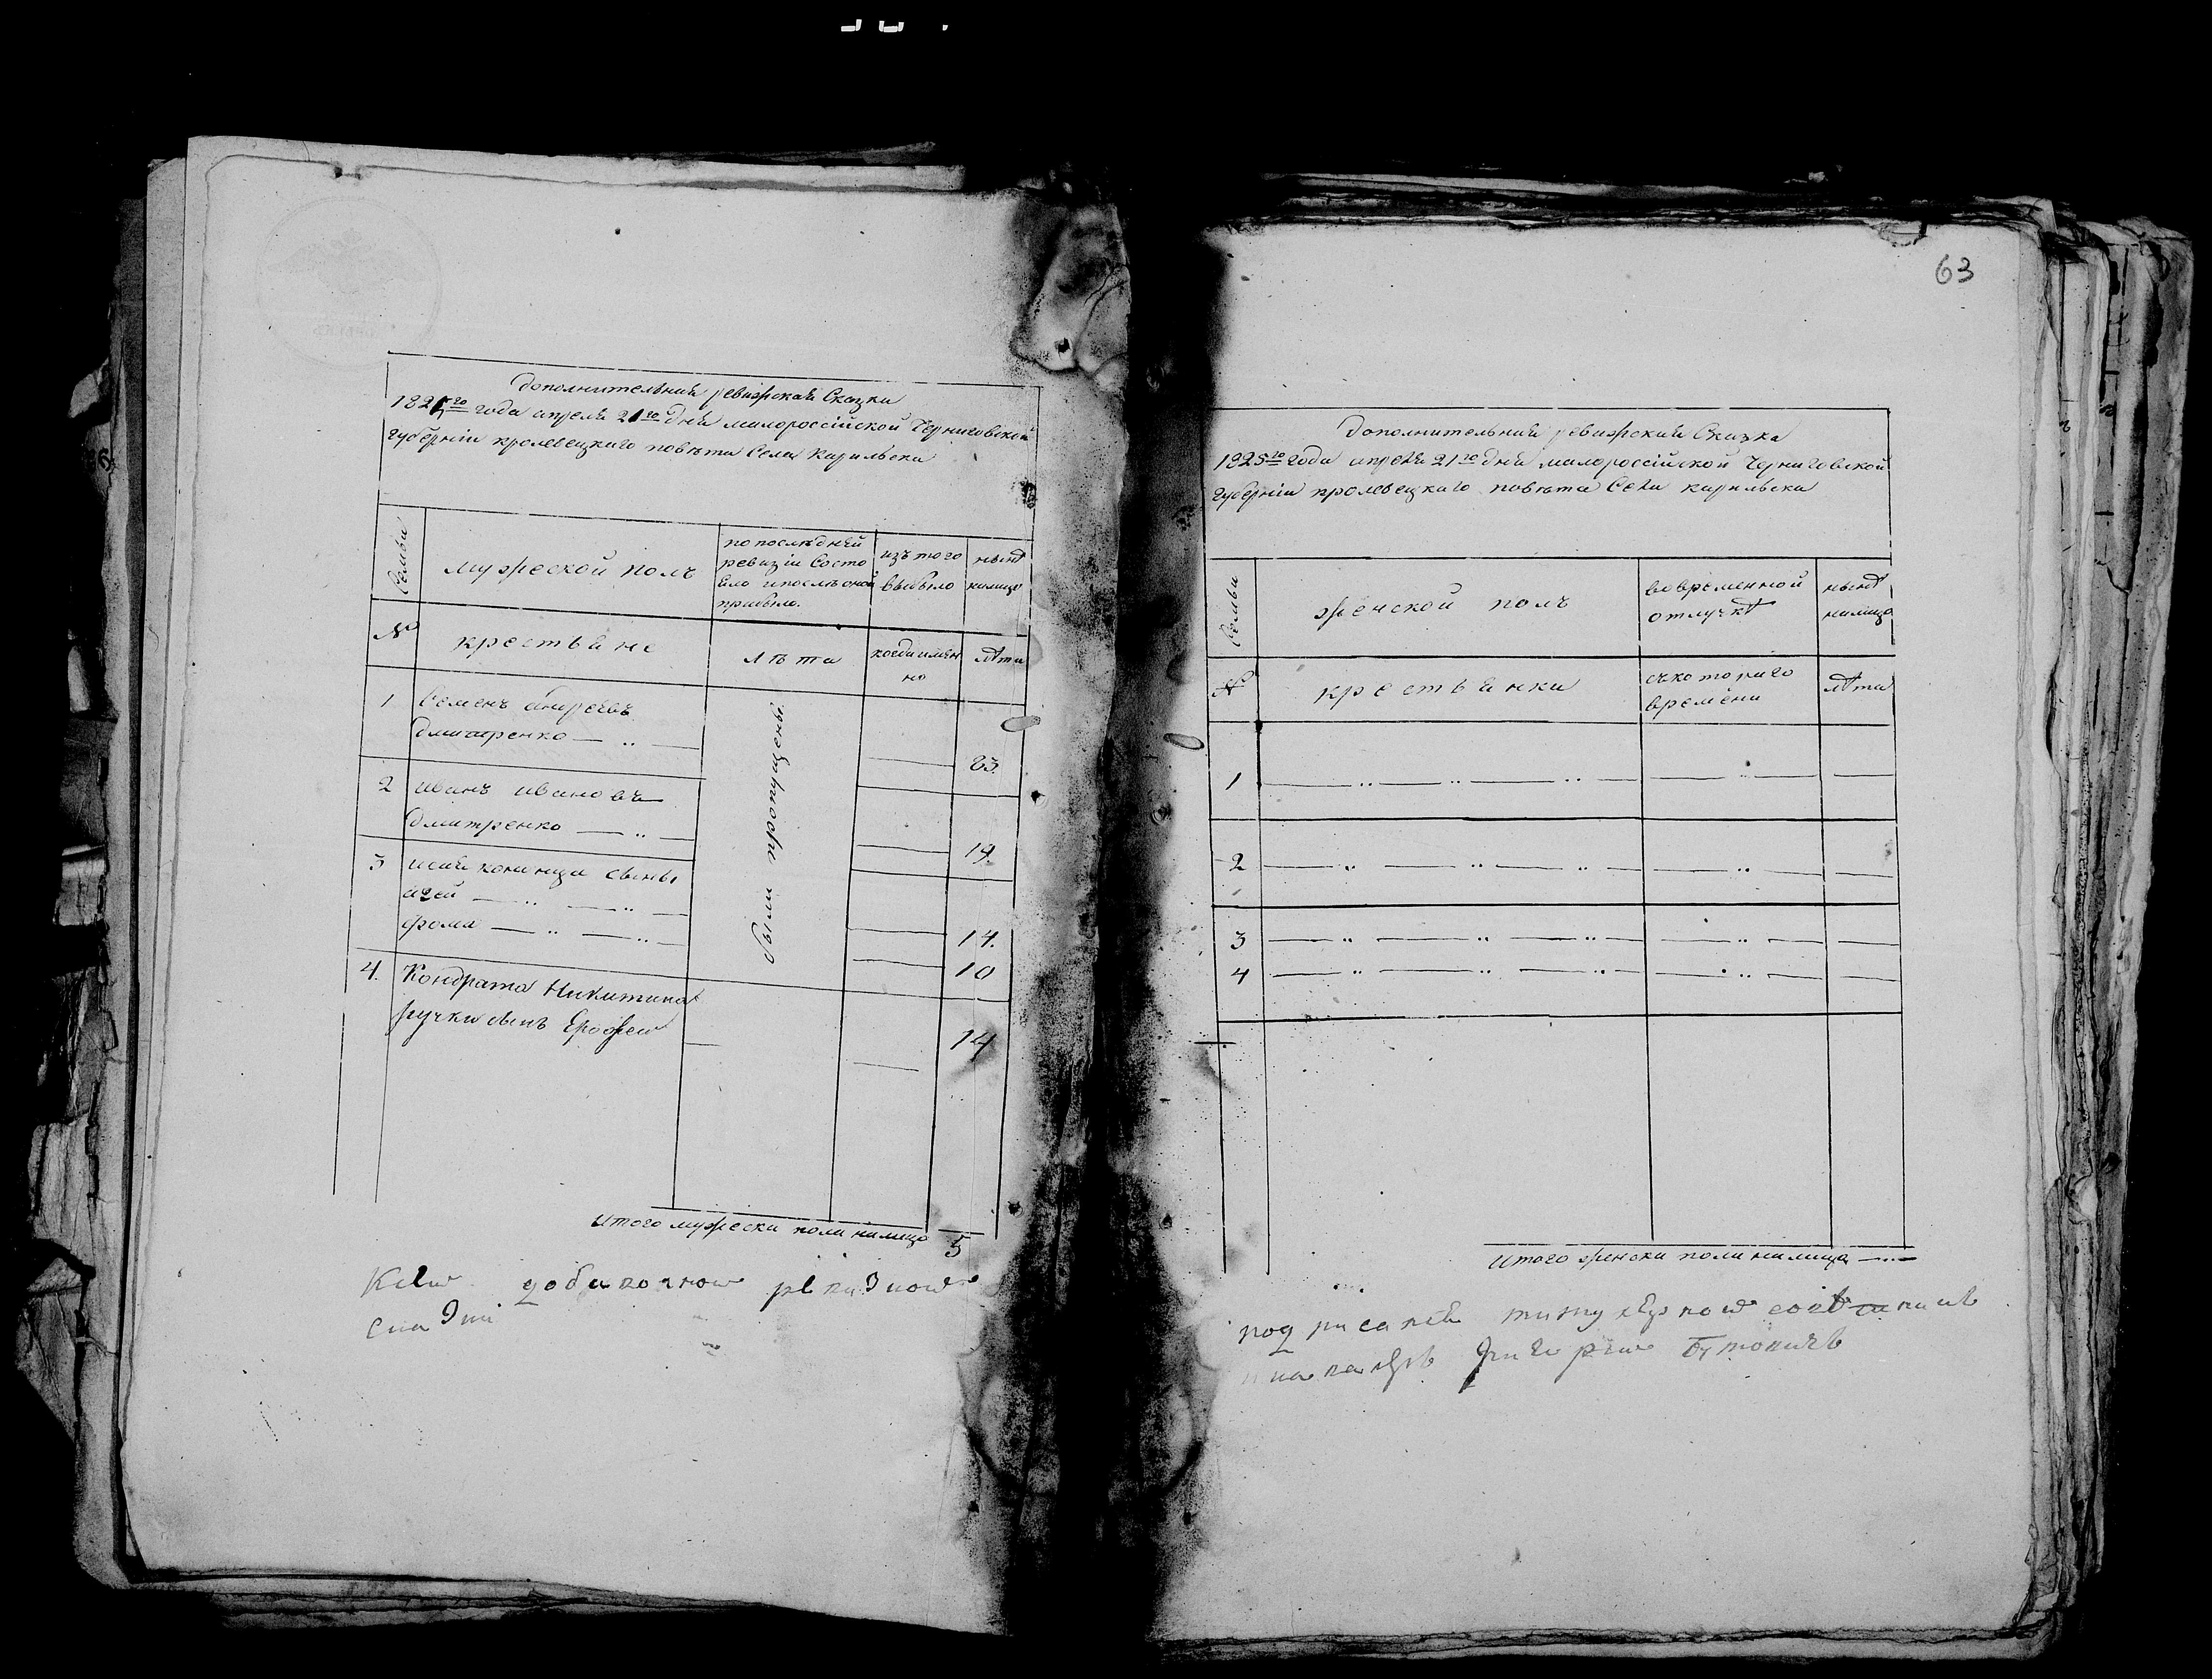 Дополнительная ревизская Сказка
1825го года апреля 21го дня малороссійской Черниговской
губерніи кролевецкаго повѣта Села Карильска
Семьи
мужеской полъ
по послѣдней
ревизіи Состо
яло и послѣ оной
прибыло.
изъ того
выбыло
нынѣ
налицо
№
крестьяне
лѣта
когда имен
но
лѣта
были пропущены.
1
Семенъ андреевъ
дмитренко
23.
2
иванъ ивановъ
дмитренко
19.
3
исая конища сыны
аѳей
14.
фома
10
4.
Кондрата Никитина
ручки сынъ Ерофей
14
итого мужеска пола налицо 5
К сей добавочной ревизской
сказки
63
Дополнительная ревизская Сказка
1825го года апреля 21го дня малороссійской Черниговской
губерніи кролевецкаго повѣта Села карильска
Семьи
женской полъ
во временной
отлучкѣ
нынѣ
налицо
№
крестьянки
съ котораго
времени
лѣта
1
2
3
4
итого женска пола налицо